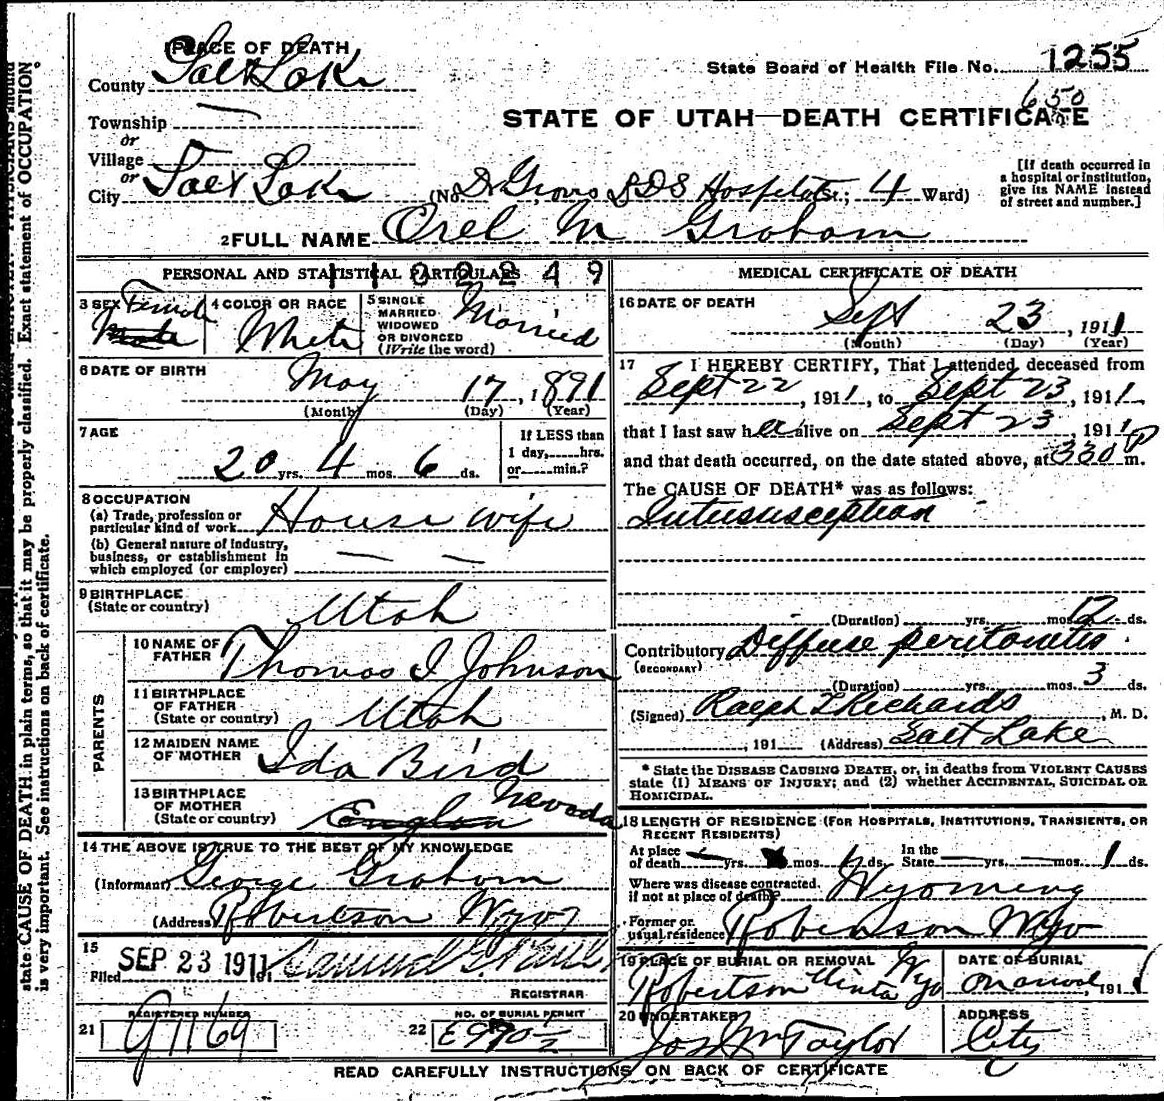 PLACE OF DEATH
County Salt Lake
State Board of Health File No. 1255
650
STATE OF UTAH—DEATH CERTIFICATE
Township —
or
Village
or
City Salt Lake (No. Dr Groves L D S Hospital St.; 4 Ward)
[If death occurred in a hospital or institution, give its NAME instead of street and number.]
2 FULL NAME Orel M Graham
PERSONAL AND STATISTICAL PARTICULARS
1102249
3 SEX Female
Male
4 COLOR OR RACE White
5 SINGLE MARRIED WIDOWED OR DIVORCED (Write the word) Married
6 DATE OF BIRTH May 17, 1891
(Month) (Day) (Year)
7 AGE 20 yrs. 4 mos. 6 ds.
If LESS than 1 day,......hrs. or......min.?
8 OCCUPATION
(a) Trade, profession or particular kind of work House wife
(b) General nature of industry, business, or establishment in which employed (or employer) — —
9 BIRTHPLACE (State or country) Utah
PARENTS
10 NAME OF FATHER Thomas J Johnson
11 BIRTHPLACE OF FATHER (State or country) Utah
12 MAIDEN NAME OF MOTHER Ida Bird
13 BIRTHPLACE OF MOTHER (State or country) Nevada
14 THE ABOVE IS TRUE TO THE BEST OF MY KNOWLEDGE
(Informant) George Graham
(Address) Robertson Wyo
15 Filed SEP 23 1911
REGISTRAR
REGISTERED NUMBER
21 G 1169
NO. OF BURIAL PERMIT
22
MEDICAL CERTIFICATE OF DEATH
16 DATE OF DEATH Sept 23, 1911
(Month) (Day) (Year)
17 I HEREBY CERTIFY, That I attended deceased from
Sept 22, 1911, to Sept 23, 1911
that I last saw her alive on Sept 23, 1911
and that death occurred, on the date stated above, at 330 P m.
The CAUSE OF DEATH* was as follows:
Intususception
(Duration) yrs. mos. 12 ds.
Contributory Diffuse peritonitis
(SECONDARY)
(Duration) yrs. mos. 3 ds.
(Signed) Ralph T Richards, M. D.
, 191 (Address) Salt Lake
* State the DISEASE CAUSING DEATH, or, in deaths from VIOLENT CAUSES state (1) MEANS OF INJURY; and (2) whether ACCIDENTAL, SUICIDAL OR HOMICIDAL.
18 LENGTH OF RESIDENCE (FOR HOSPITALS, INSTITUTIONS, TRANSIENTS, OR RECENT RESIDENTS)
At place of death — yrs. mos. 1 ds. In the State — yrs. — mos. 1 ds.
Where was disease contracted, if not at place of death? Wyoming
Former or usual residence Robinson Wyo
19 PLACE OF BURIAL OR REMOVAL Robertson Uinta Wyo
DATE OF BURIAL On arrival, 191 1
20 UNDERTAKER Jos Wm Taylor
ADDRESS City
READ CAREFULLY INSTRUCTIONS ON BACK OF CERTIFICATE
state CAUSE OF DEATH in plain terms, so that it may be properly classified. Exact statement of OCCUPATION
is very important. See instructions on back of certificate.